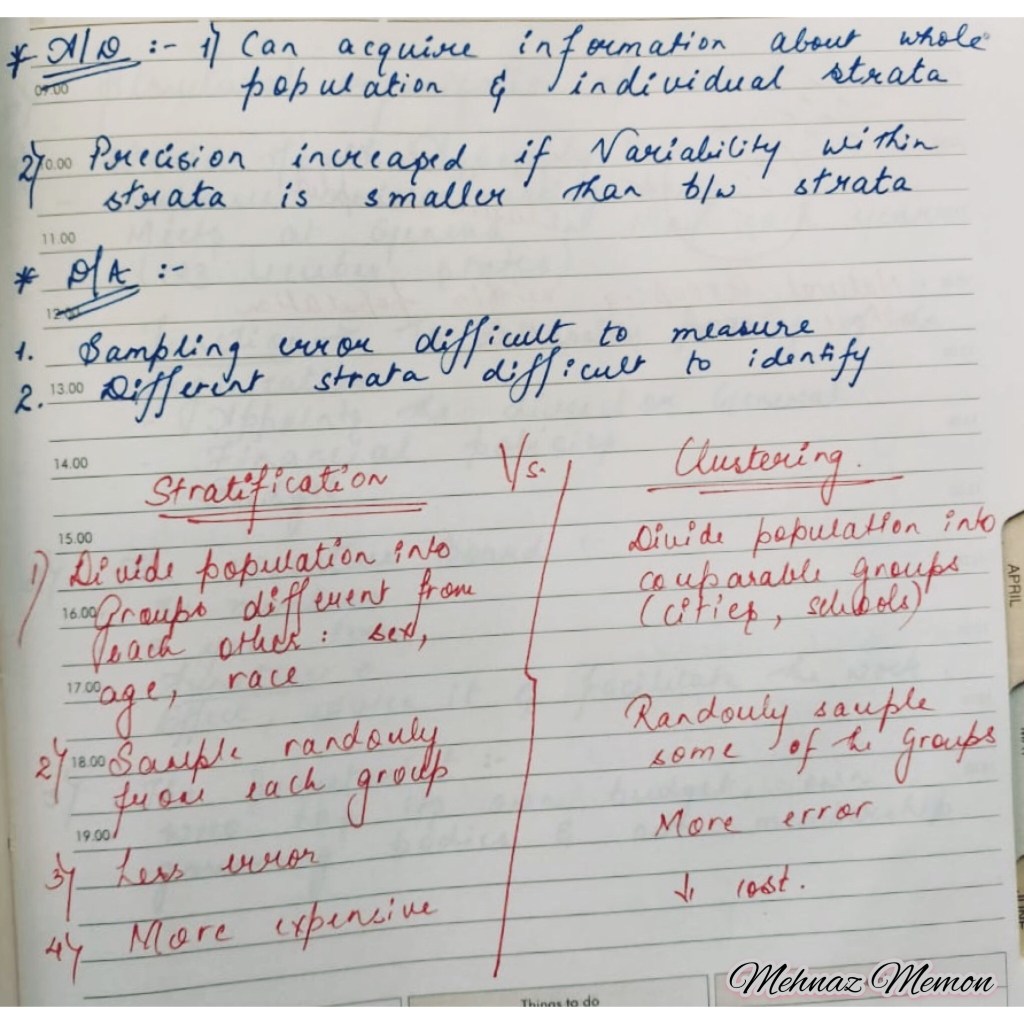 * A/D :- 1) Can acquire information about whole
09.00 population & individual strata
2) 10.00 Precision increased if Variability within
strata is smaller than b/w strata
11.00
* D/A :-
12.00
1. Sampling error difficult to measure
2. 13.00 Different strata difficult to identify
14.00
Stratification Vs. Clustering.
15.00
1) Divide population into
16.00 Groups different from
each other : sex,
17.00 age, race
Divide population into
comparable groups
(cities, schools)
2) 18.00 Sample randomly
from each group
Randomly sample
some of the groups
19.00
3) Less error
More error
4) More expensive
↓ cost.
APRIL
Things to do
Mehnaz Memon